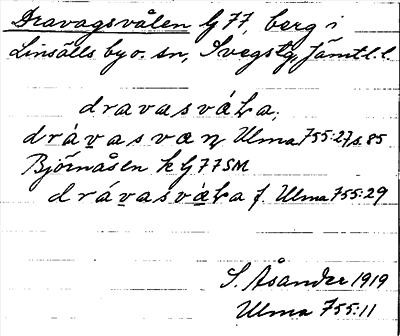 Dravagsvålen G 77, berg i
Linsälls by o. sn, Svegs tg, Jämtl. l.
dravasvåla,
drávasvæn Ulma 755:27 s. 85
Björnåsen k G 77 SM
drávasvåla f. Ulma 755:29
S. Åsander 1919
Ulma 755:11